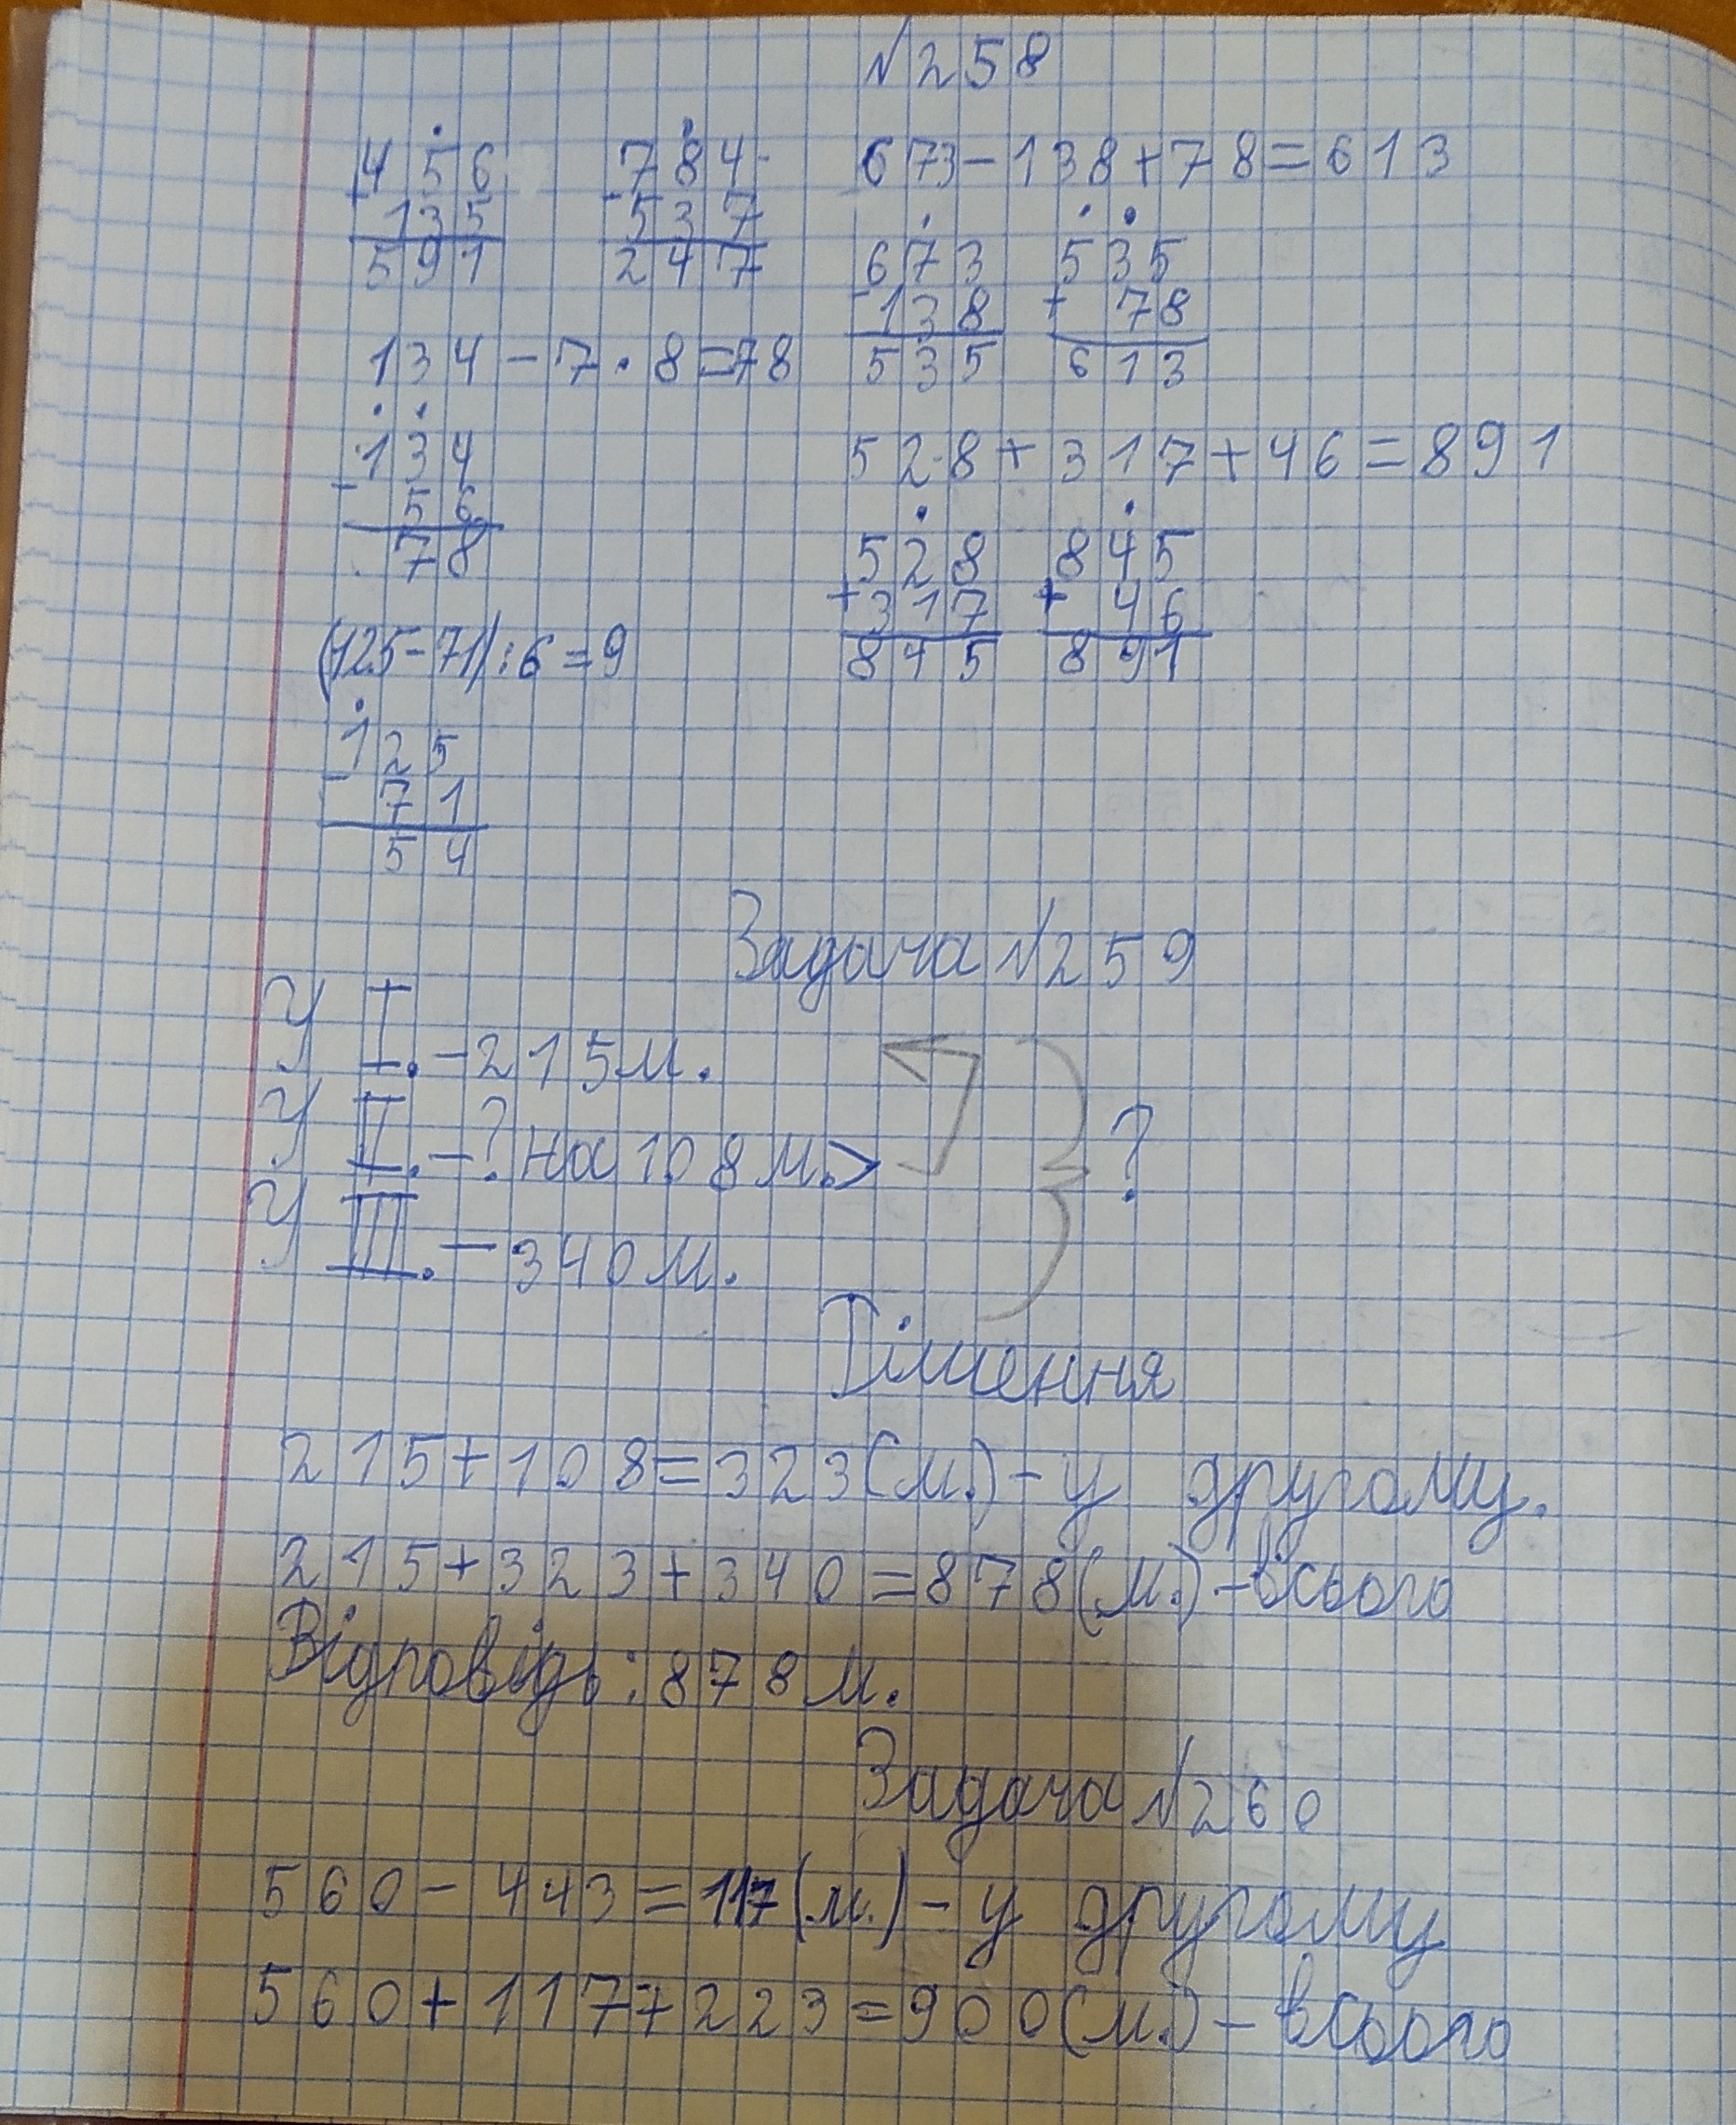 №258
456 784 673-138+78=613
+135 -537
591 247
673 535
-138 + 78
535 613
134-7·8=78
134
- 56
78
528+317+46=891
528 845
+317 + 46
845 891
(125-71):6=9
125
- 71
54
Задача №259
У I.-215м.
У II.-? на 108м.> ?
У III.-340м.
Рішення
215+108=323(м.)-у другому.
215+323+340=878(м.)-всього
Відповідь: 878м.
Задача №260
560-443=117(м.)-у другому
560+117+223=900(м.)-всього